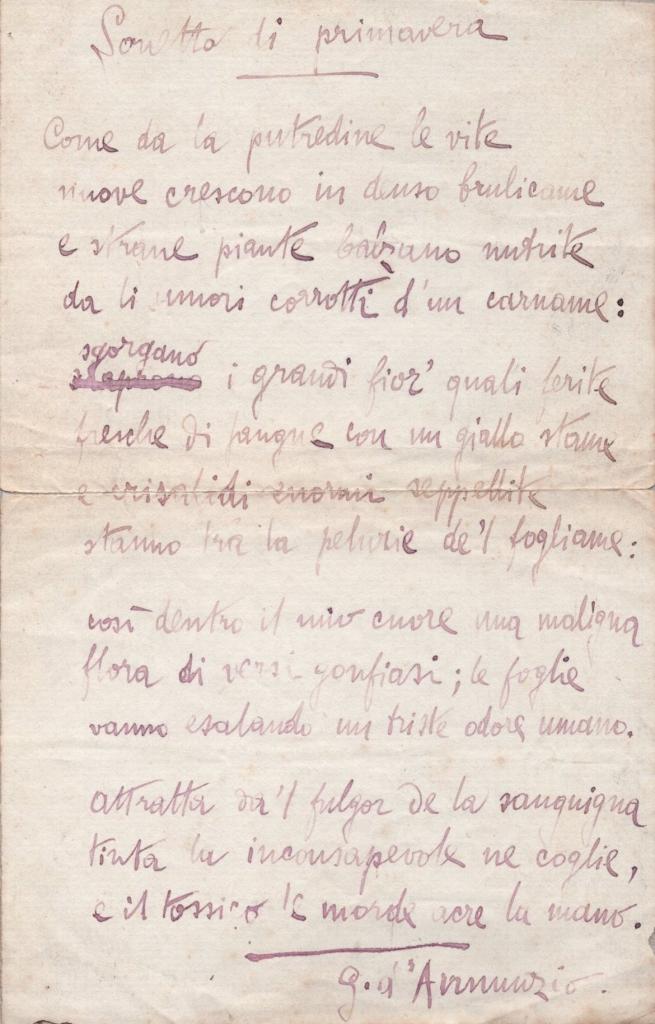 Sonetto di primavera
Come da la putredine le vite
nuove crescono in denso brulicame
e strane piante balzano nutrite
da li umori corrotti d'un carname:
sgorgano
s'aprono i grandi fior' quali ferite
fresche di sangue con un giallo stame
e crisalidi enormi seppellite
stanno tra la pelurie de'l fogliame:
così dentro il mio cuore una maligna
flora di versi gonfiasi; le foglie
vanno esalando un triste odore umano.
attratta da'l fulgor de la sanguigna
tinta la inconsapevole ne coglie,
e il tossico le morde acre la mano.
G. d'Annunzio.